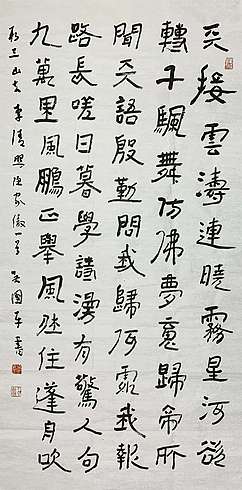 天接雲濤連曉霧星河欲
轉千颿舞仿佛夢魂歸帝所
聞天語殷勤問我歸何處我報
路長嗟日暮學詩漫有驚人句
九萬里風鵬正舉風休住蓬舟吹
取三山去 李清照漁家傲一首 國書